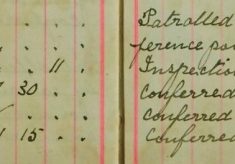 Patrolled
ference
. . 11 . Inspection
30 . . Conferred
. . . conferred
15 . . Conferred